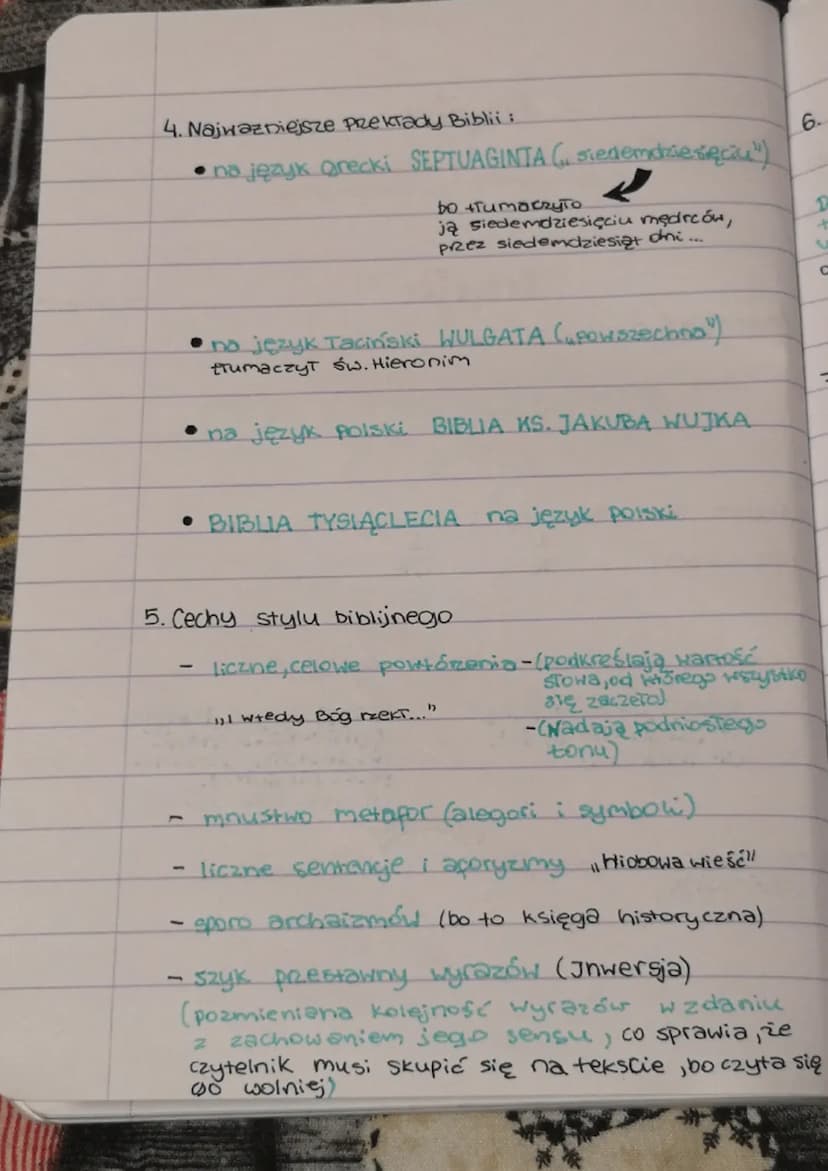 4. Najważniejsze przekłady Biblii:
• na język grecki SEPTUAGINTA („siedemdziesięciu")
bo tłumaczyło
ją siedemdziesięciu mędrców,
przez siedemdziesiąt dni...
• na język łaciński WULGATA („powszechna")
tłumaczył św. Hieronim
• na język polski BIBLIA KS. JAKUBA WUJKA
• BIBLIA TYSIĄCLECIA na język polski
5. Cechy stylu biblijnego
- liczne, celowe powtórzenia - (podkreślają wartość
słowa, od którego wszystko
się zaczęło)
„I wtedy Bóg rzekł..."
- (Nadają podniosłego
tonu)
- mnustwo metafor (alegori i symboli)
- liczne sentencje i aforyzmy „Hiobowa wieść"
- sporo archaizmów (bo to księga historyczna)
- szyk przestawny wyrazów (Inwersja)
(pozmieniana kolejność wyrazów w zdaniu
z zachowaniem jego sensu, co sprawia, że
czytelnik musi skupić się na tekście, bo czyta się
go wolniej)
6.